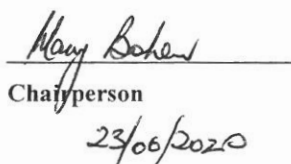 Mary Bohen
Chairperson
23/06/2020